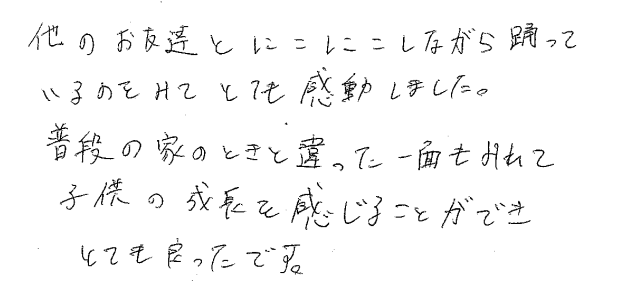 他のお友達とにこにこしながら踊って
いるのをみてとても感動しました。
普段の家のときと違った一面もみれて
子供の成長を感じることができ
とても良ったです。